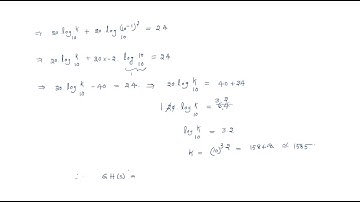 ⇒ 20 log₁₀ K + 20 log₁₀ (10⁻¹)² = 24
⇒ 20 log₁₀ K + 20 x -2 log₁₀ 10 = 24
1
⇒ 20 log₁₀ K - 40 = 24 ⇒ 20 log₁₀ K = 40 + 24
log₁₀ K = 3.2
K = (10)^3.2 = ≈ 1585
∴ GH(s) =